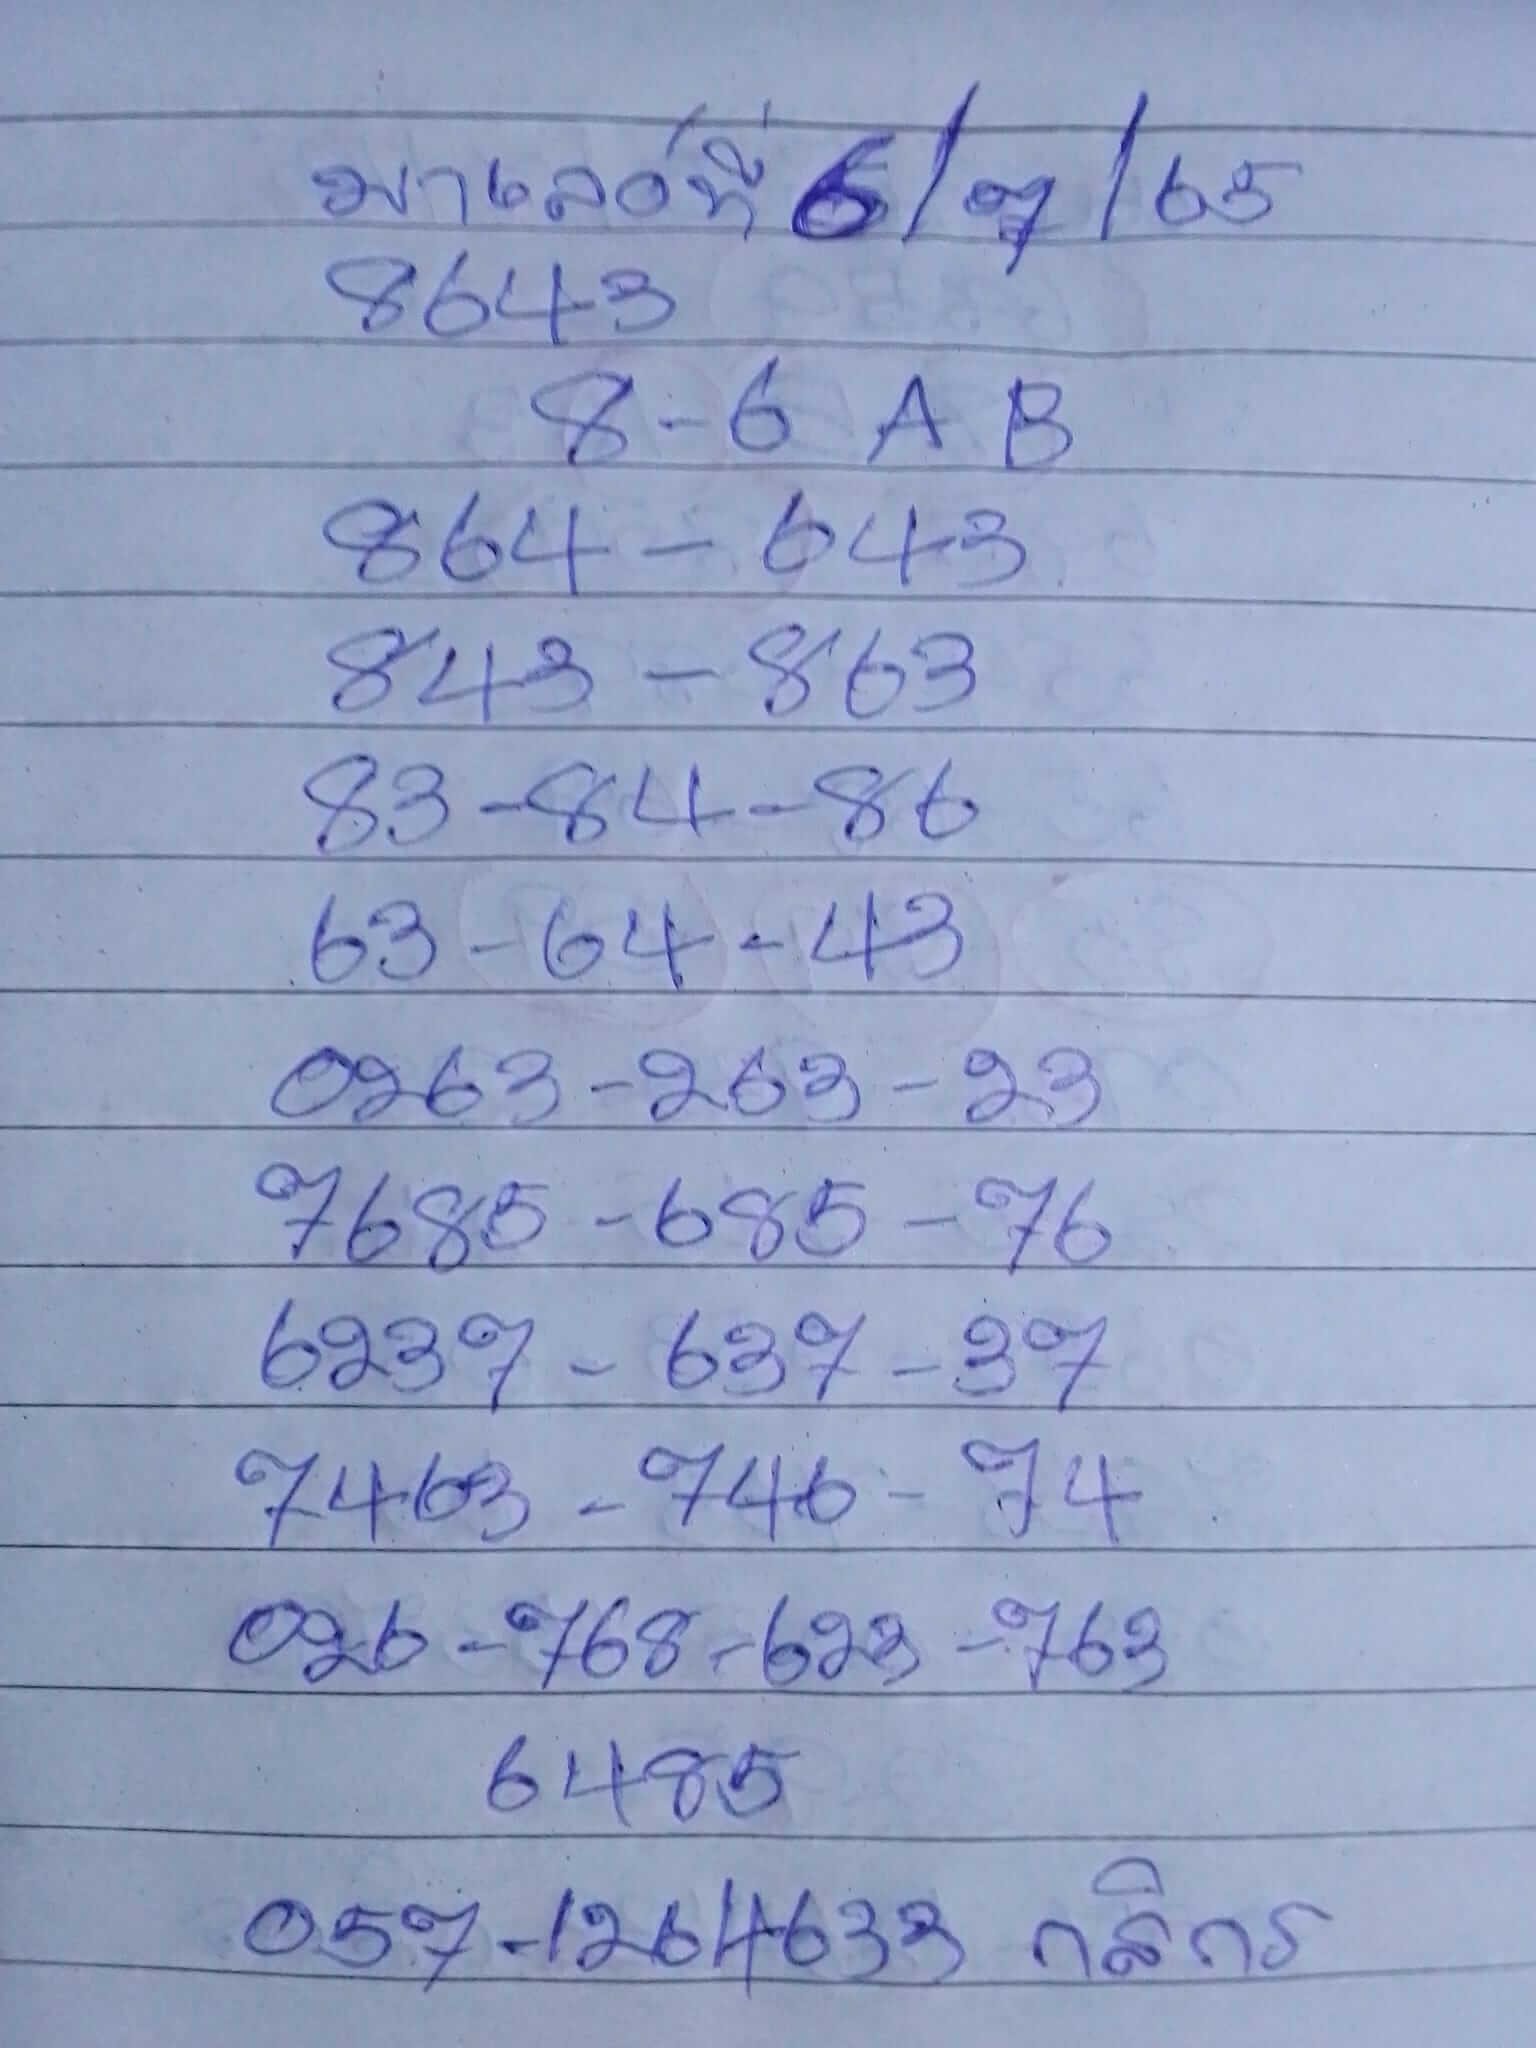 มาเลย์ที่ 6/7/65
8643
8-6 A B
864-643
843-863
83-84-86
63-64-43
0263-263-23
7685-685-76
6237-637-37
7463-746-74
026-768-623-763
6485
057-1264633 กสิกร